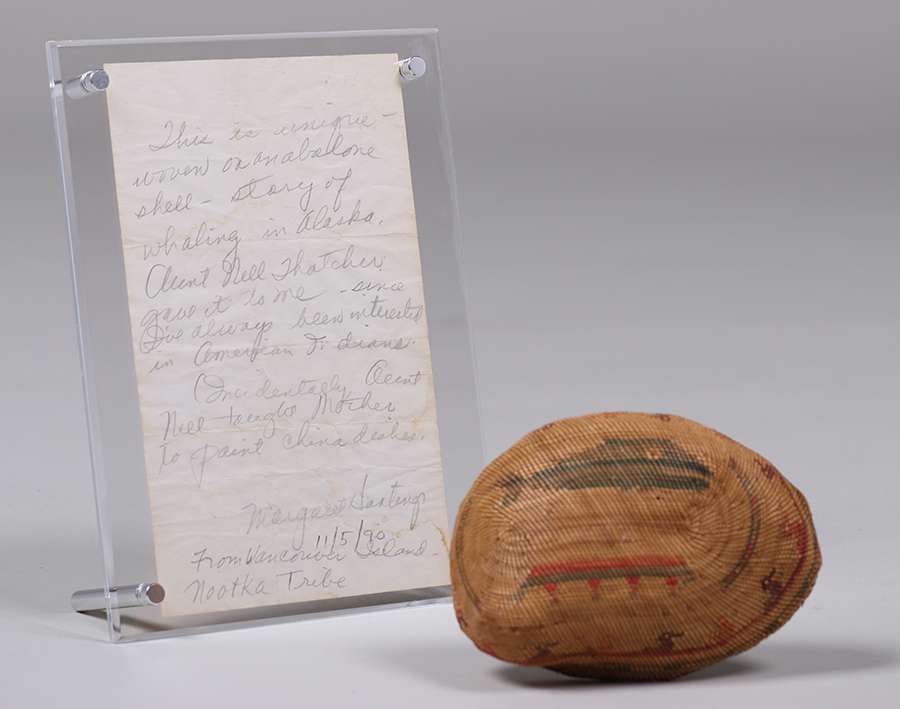 This is unique -
woven on an abalone
shell - story of
whaling in Alaska.
Aunt Nell Thatcher
gave it to me - since
I've always been interested
in American Indians.
Incidentally Aunt
Nell taught Mother
to paint china dishes.
Margaret Hastings
11/5/90
From Vancouver Island -
Nootka Tribe